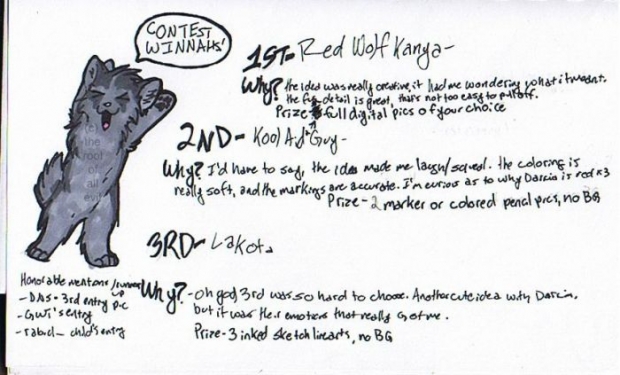 CONTEST
WINNAHS!
1ST- Red Wolf Kanya-
Why? the idea was really creative, it had me wondering what it meant.
the fur detail is great, thats not too easy to pull off.
Prize- full digital pics of your choice
2ND- Kool Aid Guy-
Why? I'd have to say, the idea made me laugh/squeal. the coloring is
really soft, and the markings are accurate. I'm curious as to why Darcia is red x3
Prize- 2 marker or colored pencil pics, no BG
3RD- Lakota
Why? -oh god, 3rd was so hard to choose. Another cute idea with Darcia,
but it was the emotions that really get me.
Prize- 3 inked sketch linearts, no BG
Honorable mentions/runner up
- 3rd entry pic
- entry
- child's entry
(c)
the
root
of
all
evil